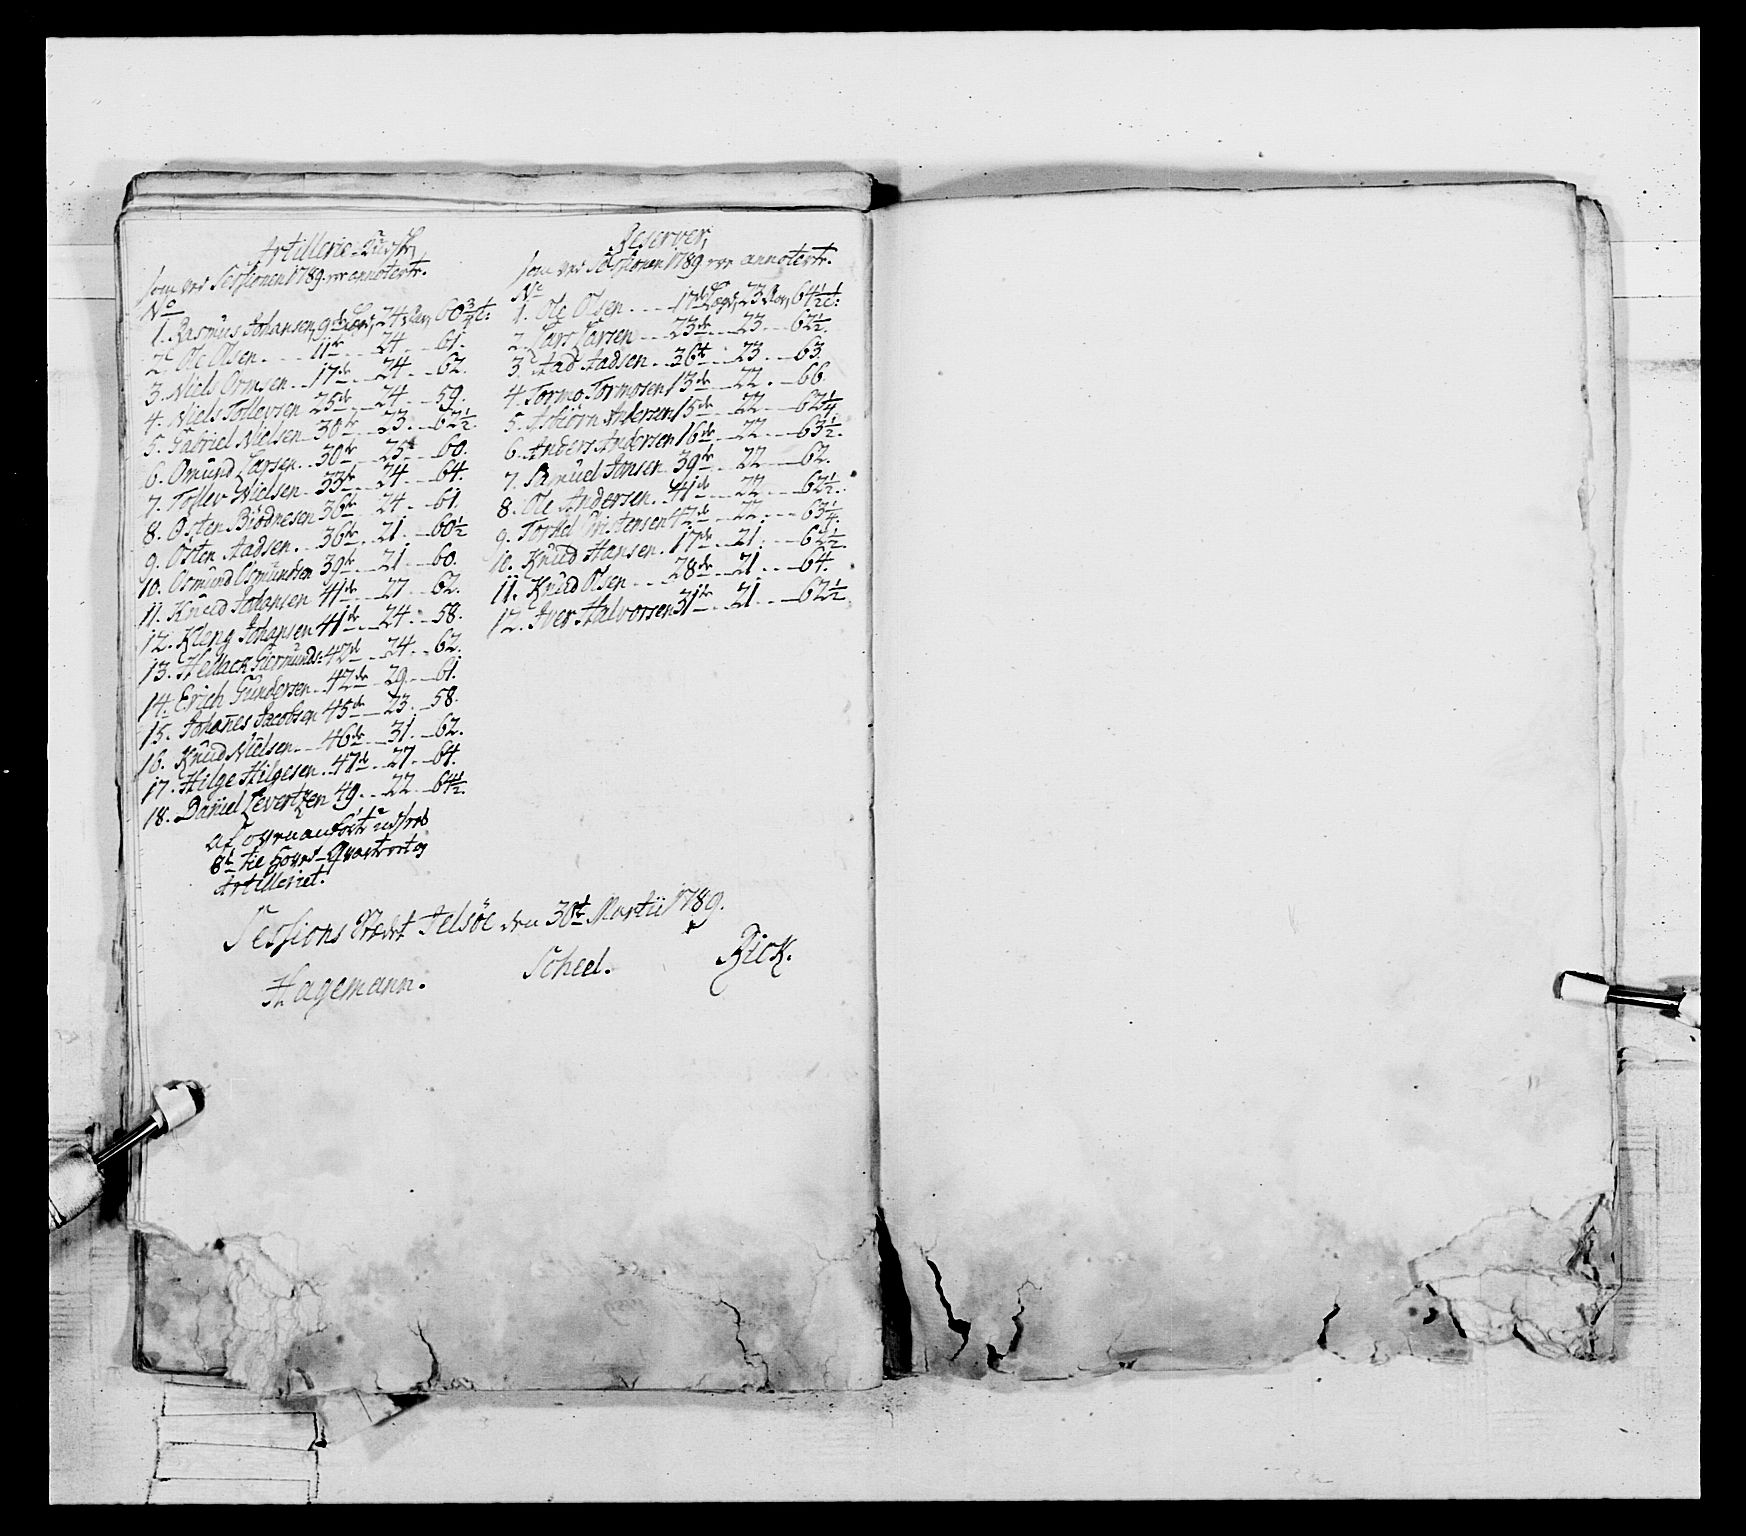 Artillerie
som ved Sessionen 1789 er annoterte.
No
1. Rasmus Johansen, 9de Lægd, 24 Aar, 60 3/4 t:
2. Ole Olsen .... 11te .. 24 .. 61.
3. Niels Ormsen .. 17de .. 24 .. 62.
4. Niels Tollevsen 25de .. 24 .. 59.
5. Gabriel Nielsen 30te .. 23 .. 62 1/2.
6. Omund Larsen .. 30te .. 25 .. 60.
7. Tollev Nielsen .. 33te .. 24 .. 64.
8. Osten Biødnesen 36te .. 24 .. 61.
9. Osten Aadsen .. 36te .. 21 .. 60 1/2
10. Osmund Osmundsen 39te .. 21 .. 60.
11. Knud Johansen 41de .. 27 .. 62.
12. Kleng Johansen 41de .. 24 .. 58.
13. Hellack Giermunds: 42de .. 24 .. 62.
14. Erich Gundersen .. 42de .. 29 .. 61.
15. Johanes Jacobsen 45de .. 23 .. 58.
16. Knud Nielsen .. 46de .. 31 .. 62.
17. Hilge Hilgesen .. 47de .. 27 .. 64.
18. Daniel Levertzen 49 .. 22 .. 64 1/2.
af ovenanførte
8te til
Artilleriet.
Reserver,
som ved Sessionen 1789 er annoterte.
No
1. Ole Olsen .... 17de Lægd, 23 Aar, 64 1/2 t:
2. Lars Larsen .. 23de .. 23 .. 62 1/2.
3. Aad Aadsen .. 36te .. 23 .. 63.
4. Tormo Tormosen 13de .. 22 .. 66.
5. Asbiørn Andersen 15de .. 22 .. 62 1/4
6. Anders Andersen 16de .. 22 .. 63 1/2.
7. Samuel Jansen 39te .. 22 .. 62.
8. Ole Andersen .. 41de .. 22 .. 62 1/2.
9. Torkel Christensen 42de .. 22 .. 63 1/4.
10. Knud Hansen .. 17de .. 21 .. 62 1/2.
11. Knud Olsen .. 28de .. 21 .. 64.
12. Iver Halvorsen 31te .. 21 .. 62 1/2
Sessions Rædet Jelsöe den 30te Martii 1789.
Hagemann. Scheel. Rick.